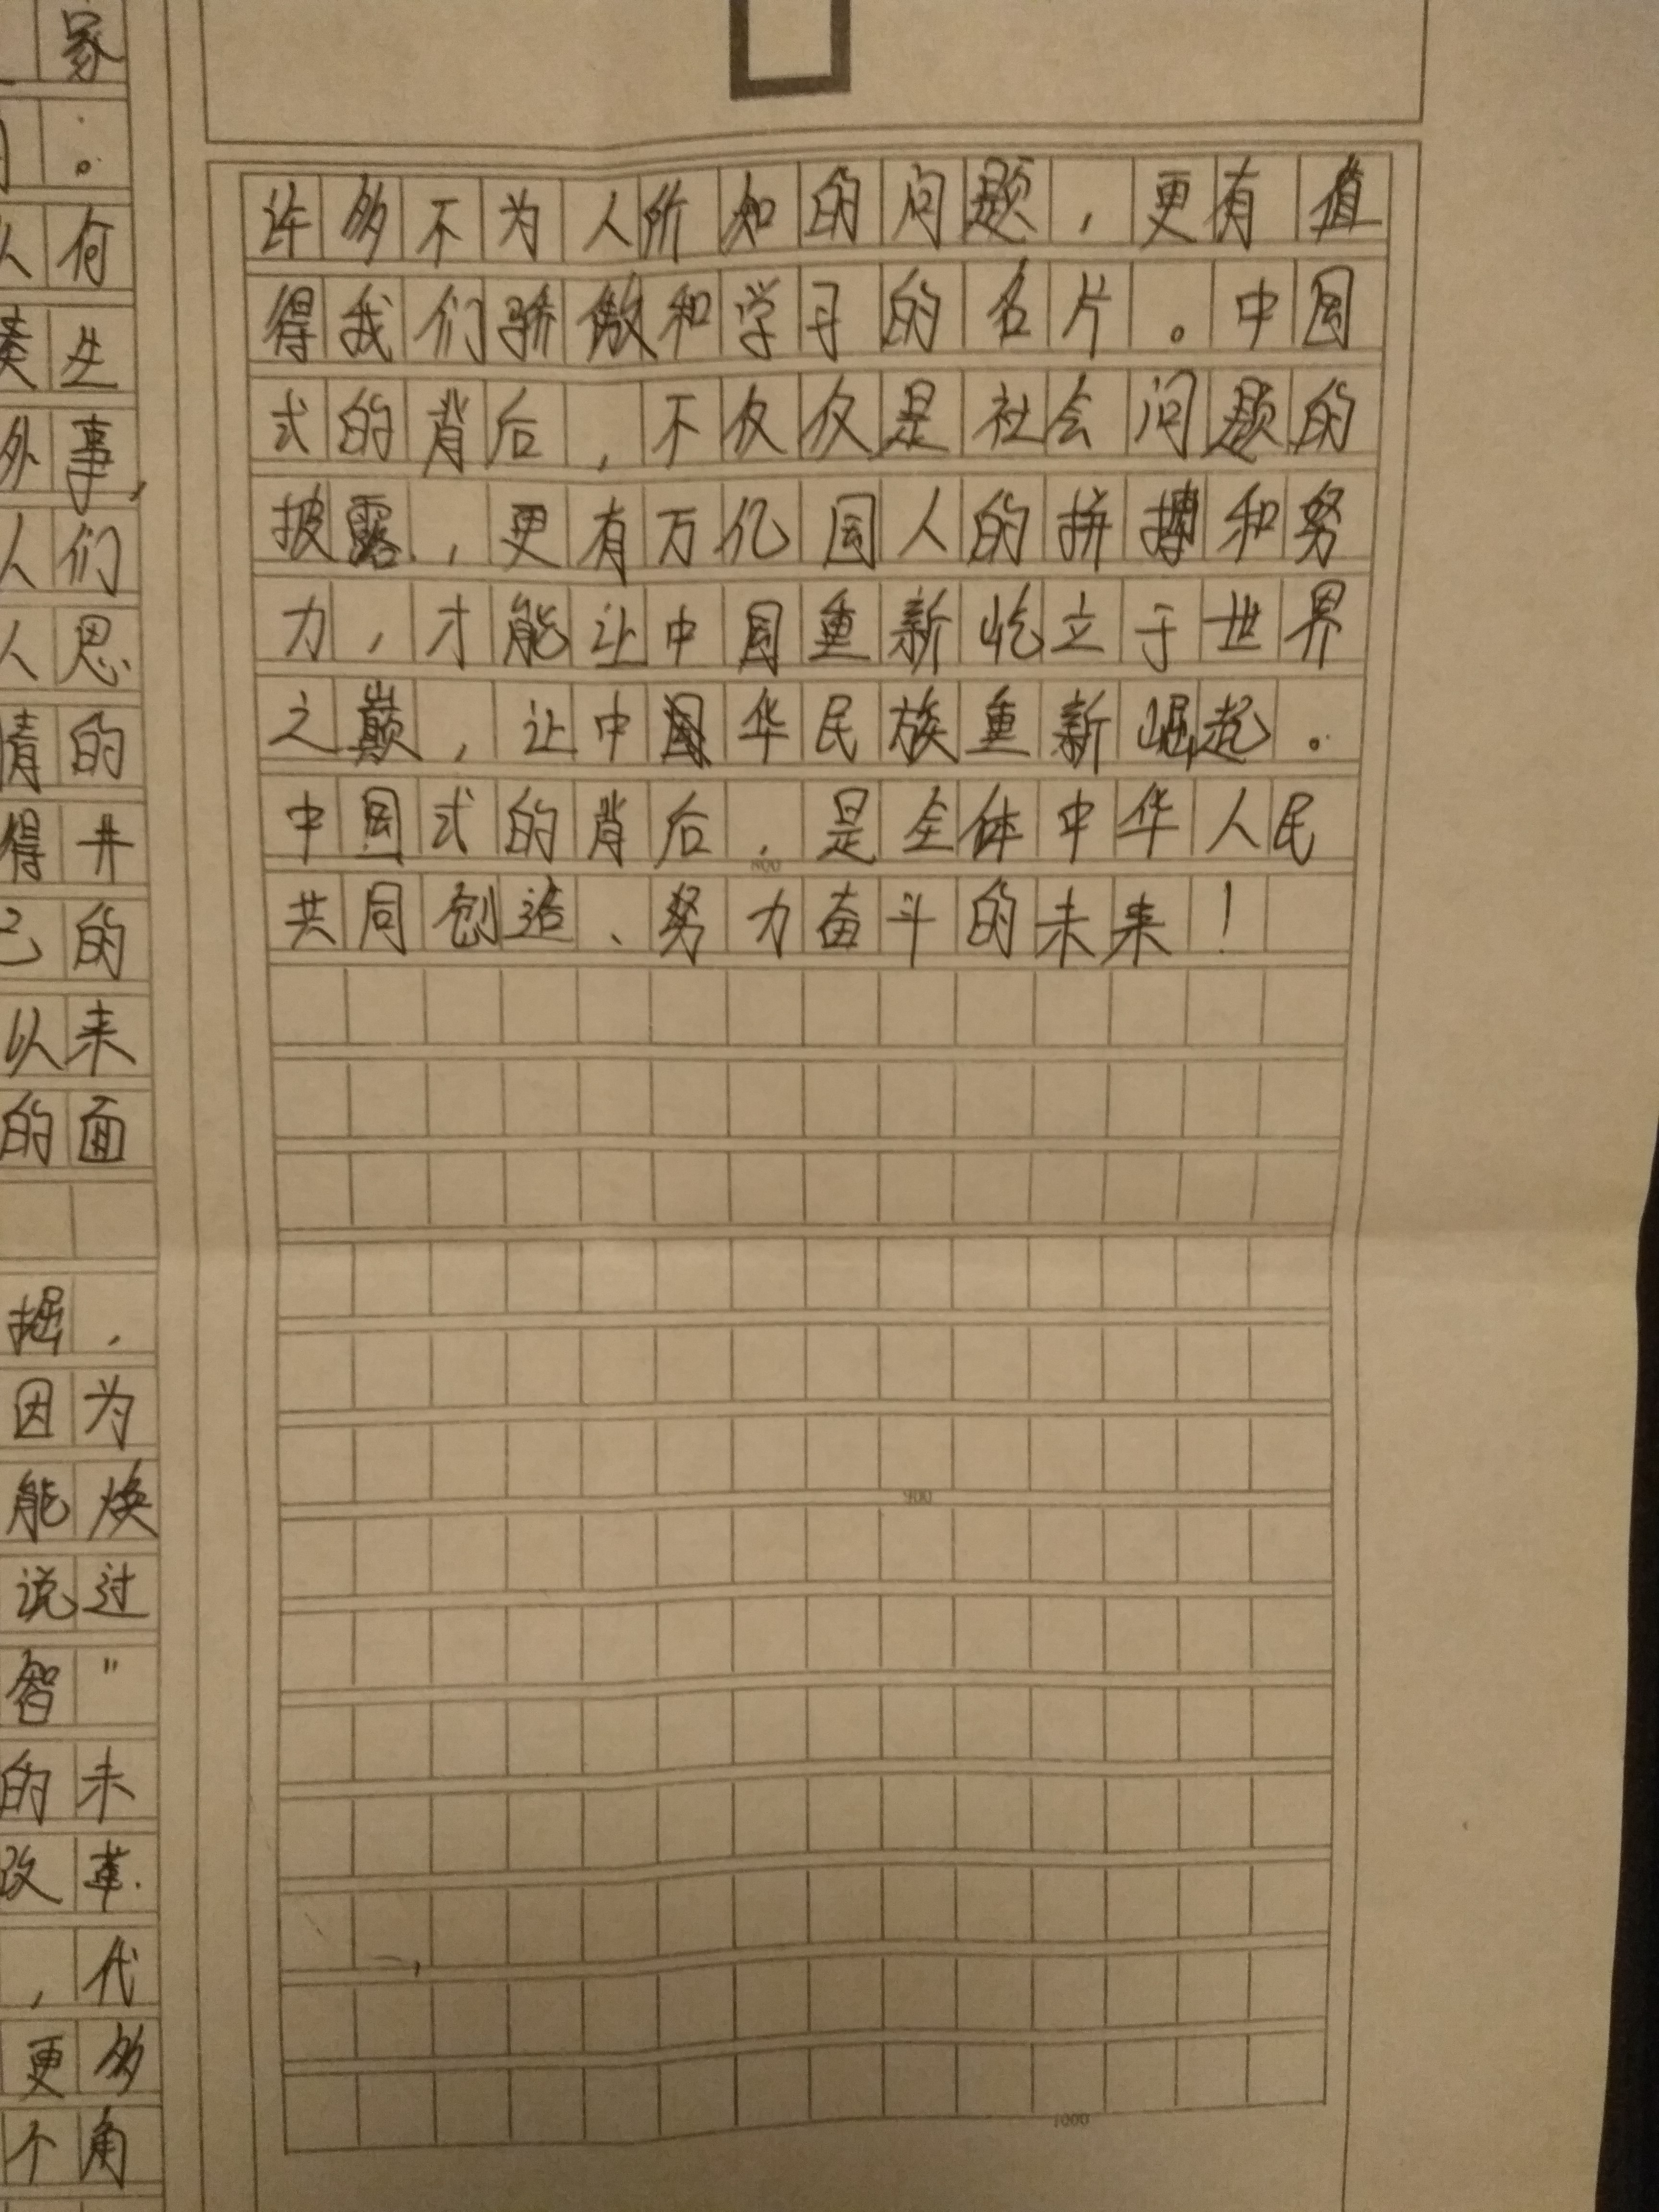 家
。
人何
责生
外事,
人们
人思
情的
得井
己的
以来
的面
掘,
因为
能焕
说过
智"
的未
改革.
,代
更多
个角
许多不为人所知的问题,更有值
得我们骄傲和学习的名片。中国
式的背后,不仅仅是社会问题的
披露,更有万亿国人的拼搏和努
力,才能让中国重新屹立于世界
之巅,让中华民族重新崛起。
中国式的背后,是全体中华人民
800
共同创造、努力奋斗的未来!
900
1000